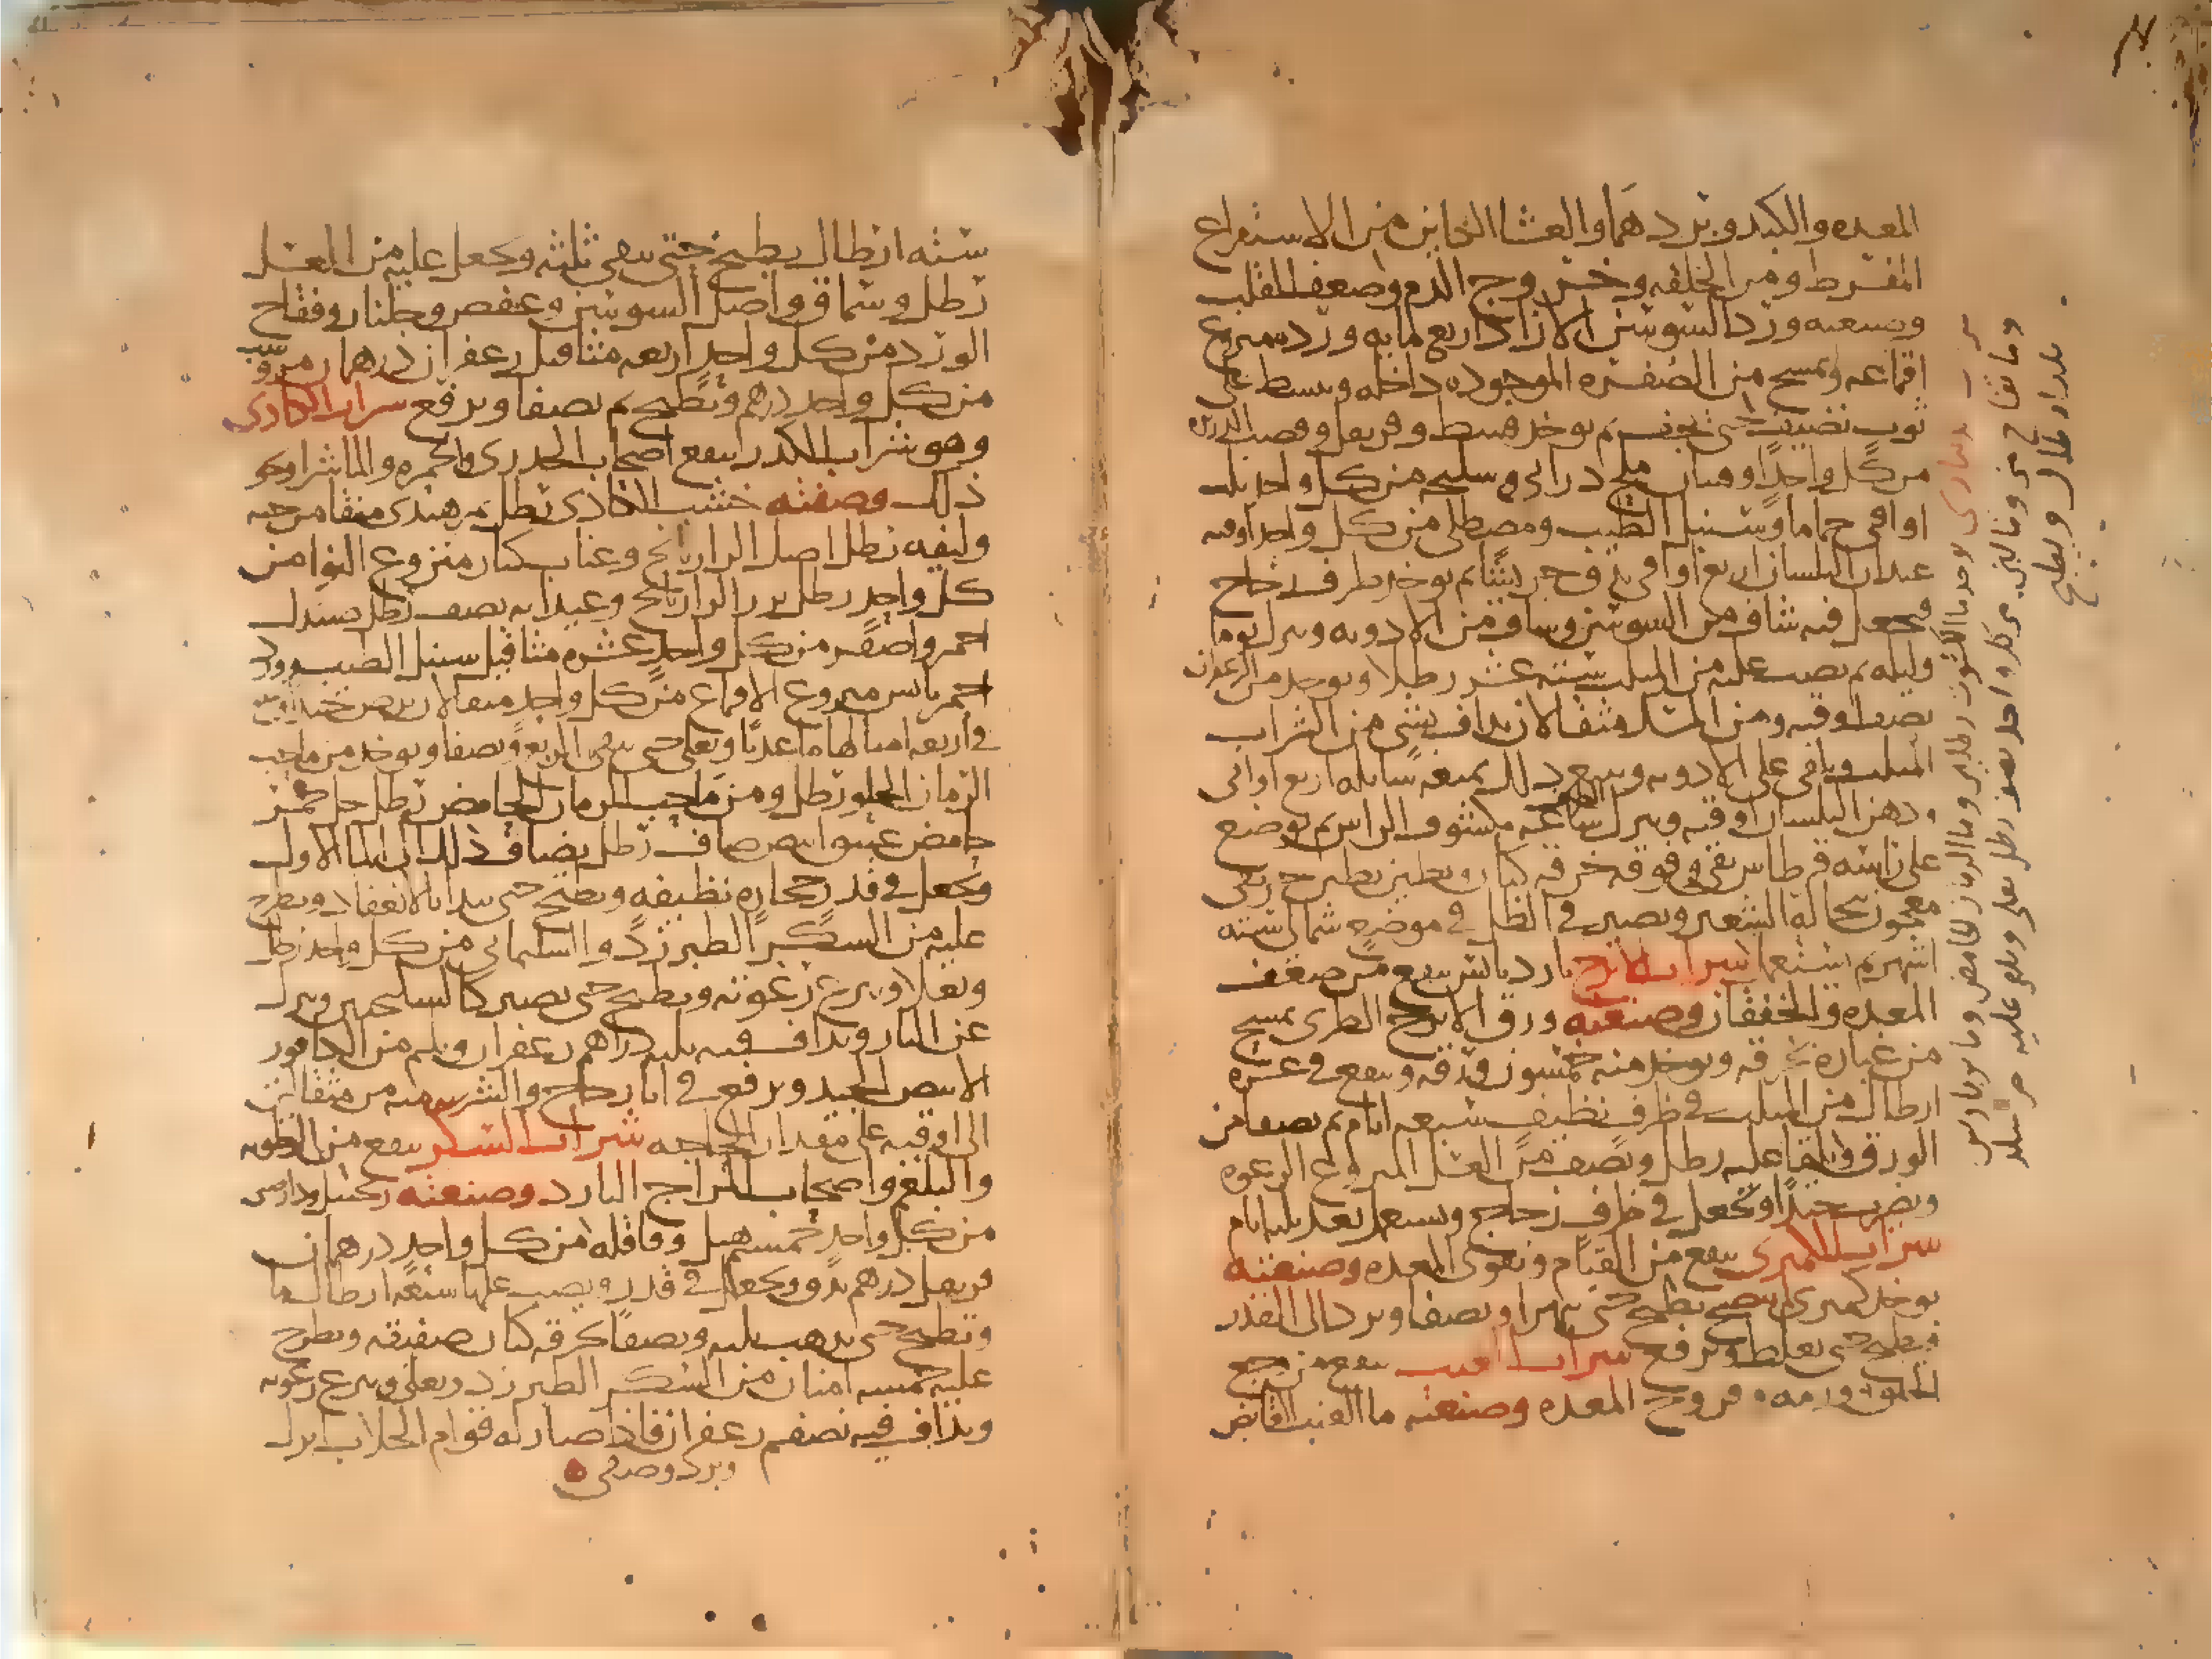 المعده والكبد وبردهما والغشا الخاين من الاستفراع
المفرط ومن الخلفه وخروج الدم وضعف القلب
وصنعته ورد السوسن الازاد اربع مايه ورده منزوع
اقماعه ويمسح من الصفره الموجوده داخله ويبسط على
ثوب نضيف حتى يجف ثم يوخذ قسط وقرنفل وقصب الذريره
من كل واحد اوقيتان ملح دراني وسليخه من كل واحد ثلث
اواقي حماما وسنبل الطيب ومصطكى من كل واحد اوقيه
عيدان البلسان اربع اواقي يدق جريشا ثم يوخذ ظرف زجاج
ويجعل فيه ساف من السوسن وساف من الادويه ويترك يوما
وليله ثم يصب عليه من المثلث سته عشر رطلا ويوخذ من الزعفران
نصف اوقيه ومن المسك مثقالان يداف بشي من الشراب
المثلث ويلقى على الادويه سايله اربع اواقي
ودهن البلسان اوقيه ويترك ساعه مكشوف الراس ثم يوضع
على راسه قرطاس نقي وفوقه خرقه كتان ويطين بطين حر نقي
معجون بنخاله الشعير ويصير في الظل في موضع شمالي سته
اشهر ثم استعمله شراب الاترج بارد يابس ينفع من ضعف
المعده والخفقان وصنعته ورق الاترج الطري يمسح
من غباره بخرقه ويوخذ منه خمسون ورقه وينقع في عشره
ارطال من المثلث في ظرف نظيف سبعه ايام ثم يصفا من
الورق ويلقا عليه رطل ونصف من العسل المنزوع الرغوه
ويضرب جيدا ويجعل في ظرف زجاج ويستعمل بعد ثلثه ايام
شراب الكمثرى ينفع من القيام ويقوي المعده وصنعته
يوخذ كمثرى يطبخ حتى يتهرا ويصفا ويرد الى القدر
ويطبخ حتى يغلظ ويرفع شراب العنب ينفع من وجع
الحلق وورمه وقروح المعده وصنعته ما العنب القابض
لاوجد ما الكشوت رطلان وما الرمان الحامض وما
وما تفاح مز من كل واحد نصف رطل يغلى ويلقى عليه من
ارطال ويطبخ
سته ارطال يطبخ حتى يبقى ثلثه ويجعل عليه من العسل
رطل وسماق واصل السوسن وعفص وجلنار وفقاح
الورد من كل واحد اربعه مثاقيل زعفران درهمان
من كل واحد درهم ويطبخ ثم يصفا ويرفع شراب الكادي
وهو شراب الكدر ينفع اصحاب الجدري والحمره والماشرا ونحو
ذلك وصفته خشب الكادي رطل تمر هندي منقا من حبه
وليفه رطل اصل الرازيانج وعناب كبار منزوع النوا من
كل واحد رطل بزر الرازيانج وعيدانه نصف رطل صندل
احمر واصفر من كل واحد عشره مثاقيل سنبل الطيب وورد
احمر يابس منزوع الاقماع من كل واحد مثقالان
في اربعه امثالها ما عذبا ويغلى حتى يبقى الربع ويصفا ويوخذ من ما حب
الرمان الحلو رطل ومن ما حب الرمان الحامض رطل خل خمر
حامض عتيق ابيض صاف رطل يضاف ذلك الى الما الاول
ويجعل في قدر حجاره نظيفه ويطبخ حتى يبدا بالانعقاد ويطرح
عليه من السكر الطبرزد والسليماني من كل واحد رطل
ويغلا وينزع رغوته ويطبخ حتى يصير كالسكنجبين وينزل
عن النار ويداف فيه ثلثه دراهم زعفران ومثله من الكافور
الابيض الجيد ويرفع في انا زجاج والشربه منه من مثقالين
الى اوقيه على مقدار الحاجه شراب السكر ينفع من الرطوبه
والبلغم واصحاب المزاج البارد وصنعته زنجبيل ودارصيني
من كل واحد خمسه هيل وقاقله من كل واحد درهمان
قرنفل درهم يدق ويجعل في قدر ويصب عليها سبعه ارطال ما
ويطبخ حتى يذهب ثلثه ويصفا بخرقه كتان صفيقه ويطرح
عليه خمسه امنان من السكر الطبرزد ويغلى وينزع رغوته
ويداف فيه نصف زعفران فاذا صار له قوام الجلاب انزل
وبرد وصفي